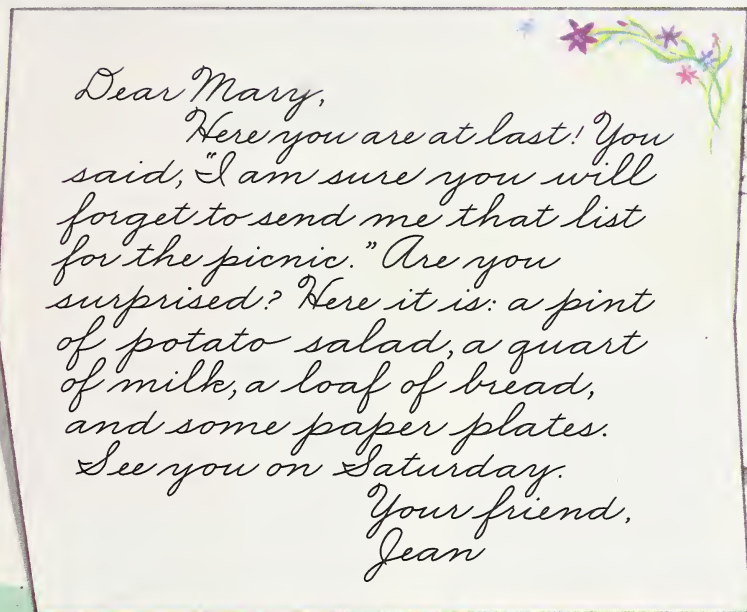 Dear Mary,
Here you are at last! You
said, "I am sure you will
forget to send me that list
for the picnic." Are you
surprised? Here it is: a pint
of potato salad, a quart
of milk, a loaf of bread,
and some paper plates.
See you on Saturday.
Your friend,
Jean